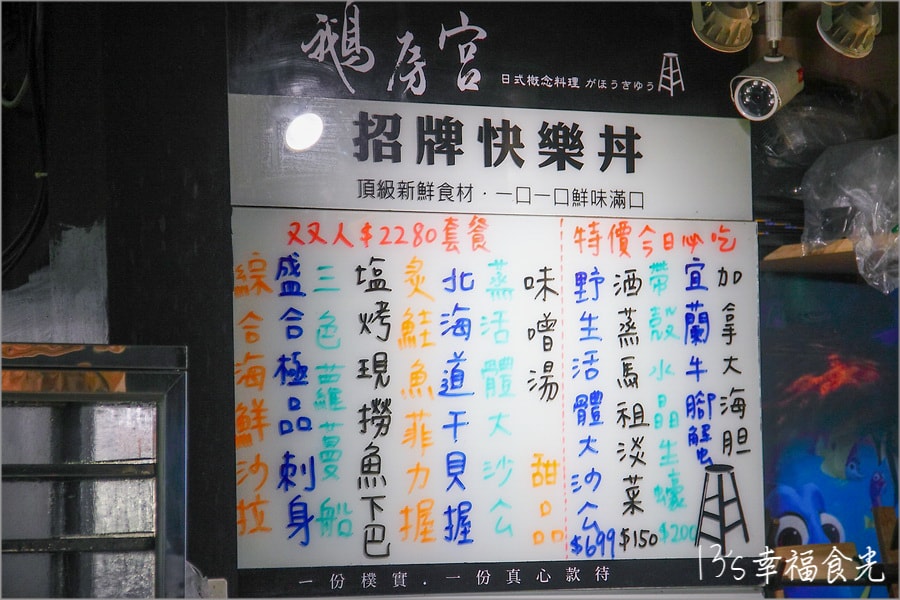 鵝房宮
日式概念料理 がほうきゆう
招牌快樂丼
頂級新鮮食材・一口一口鮮味滿口
双人$2280套餐
特價今日必吃
味噌湯
甜品
蒸活體大沙公
北海道干貝握
炙鮭魚菲力握
塩烤現撈魚下巴
三色蘿蔓船
盛合極品刺身
綜合海鮮沙拉
加拿大海胆
宜蘭牛腳蟹
帶殼水晶生蠔 $200
酒蒸馬祖淡菜 $150
野生活體大沙公 $699
一份樸實．一份真心款待
13's幸福食光